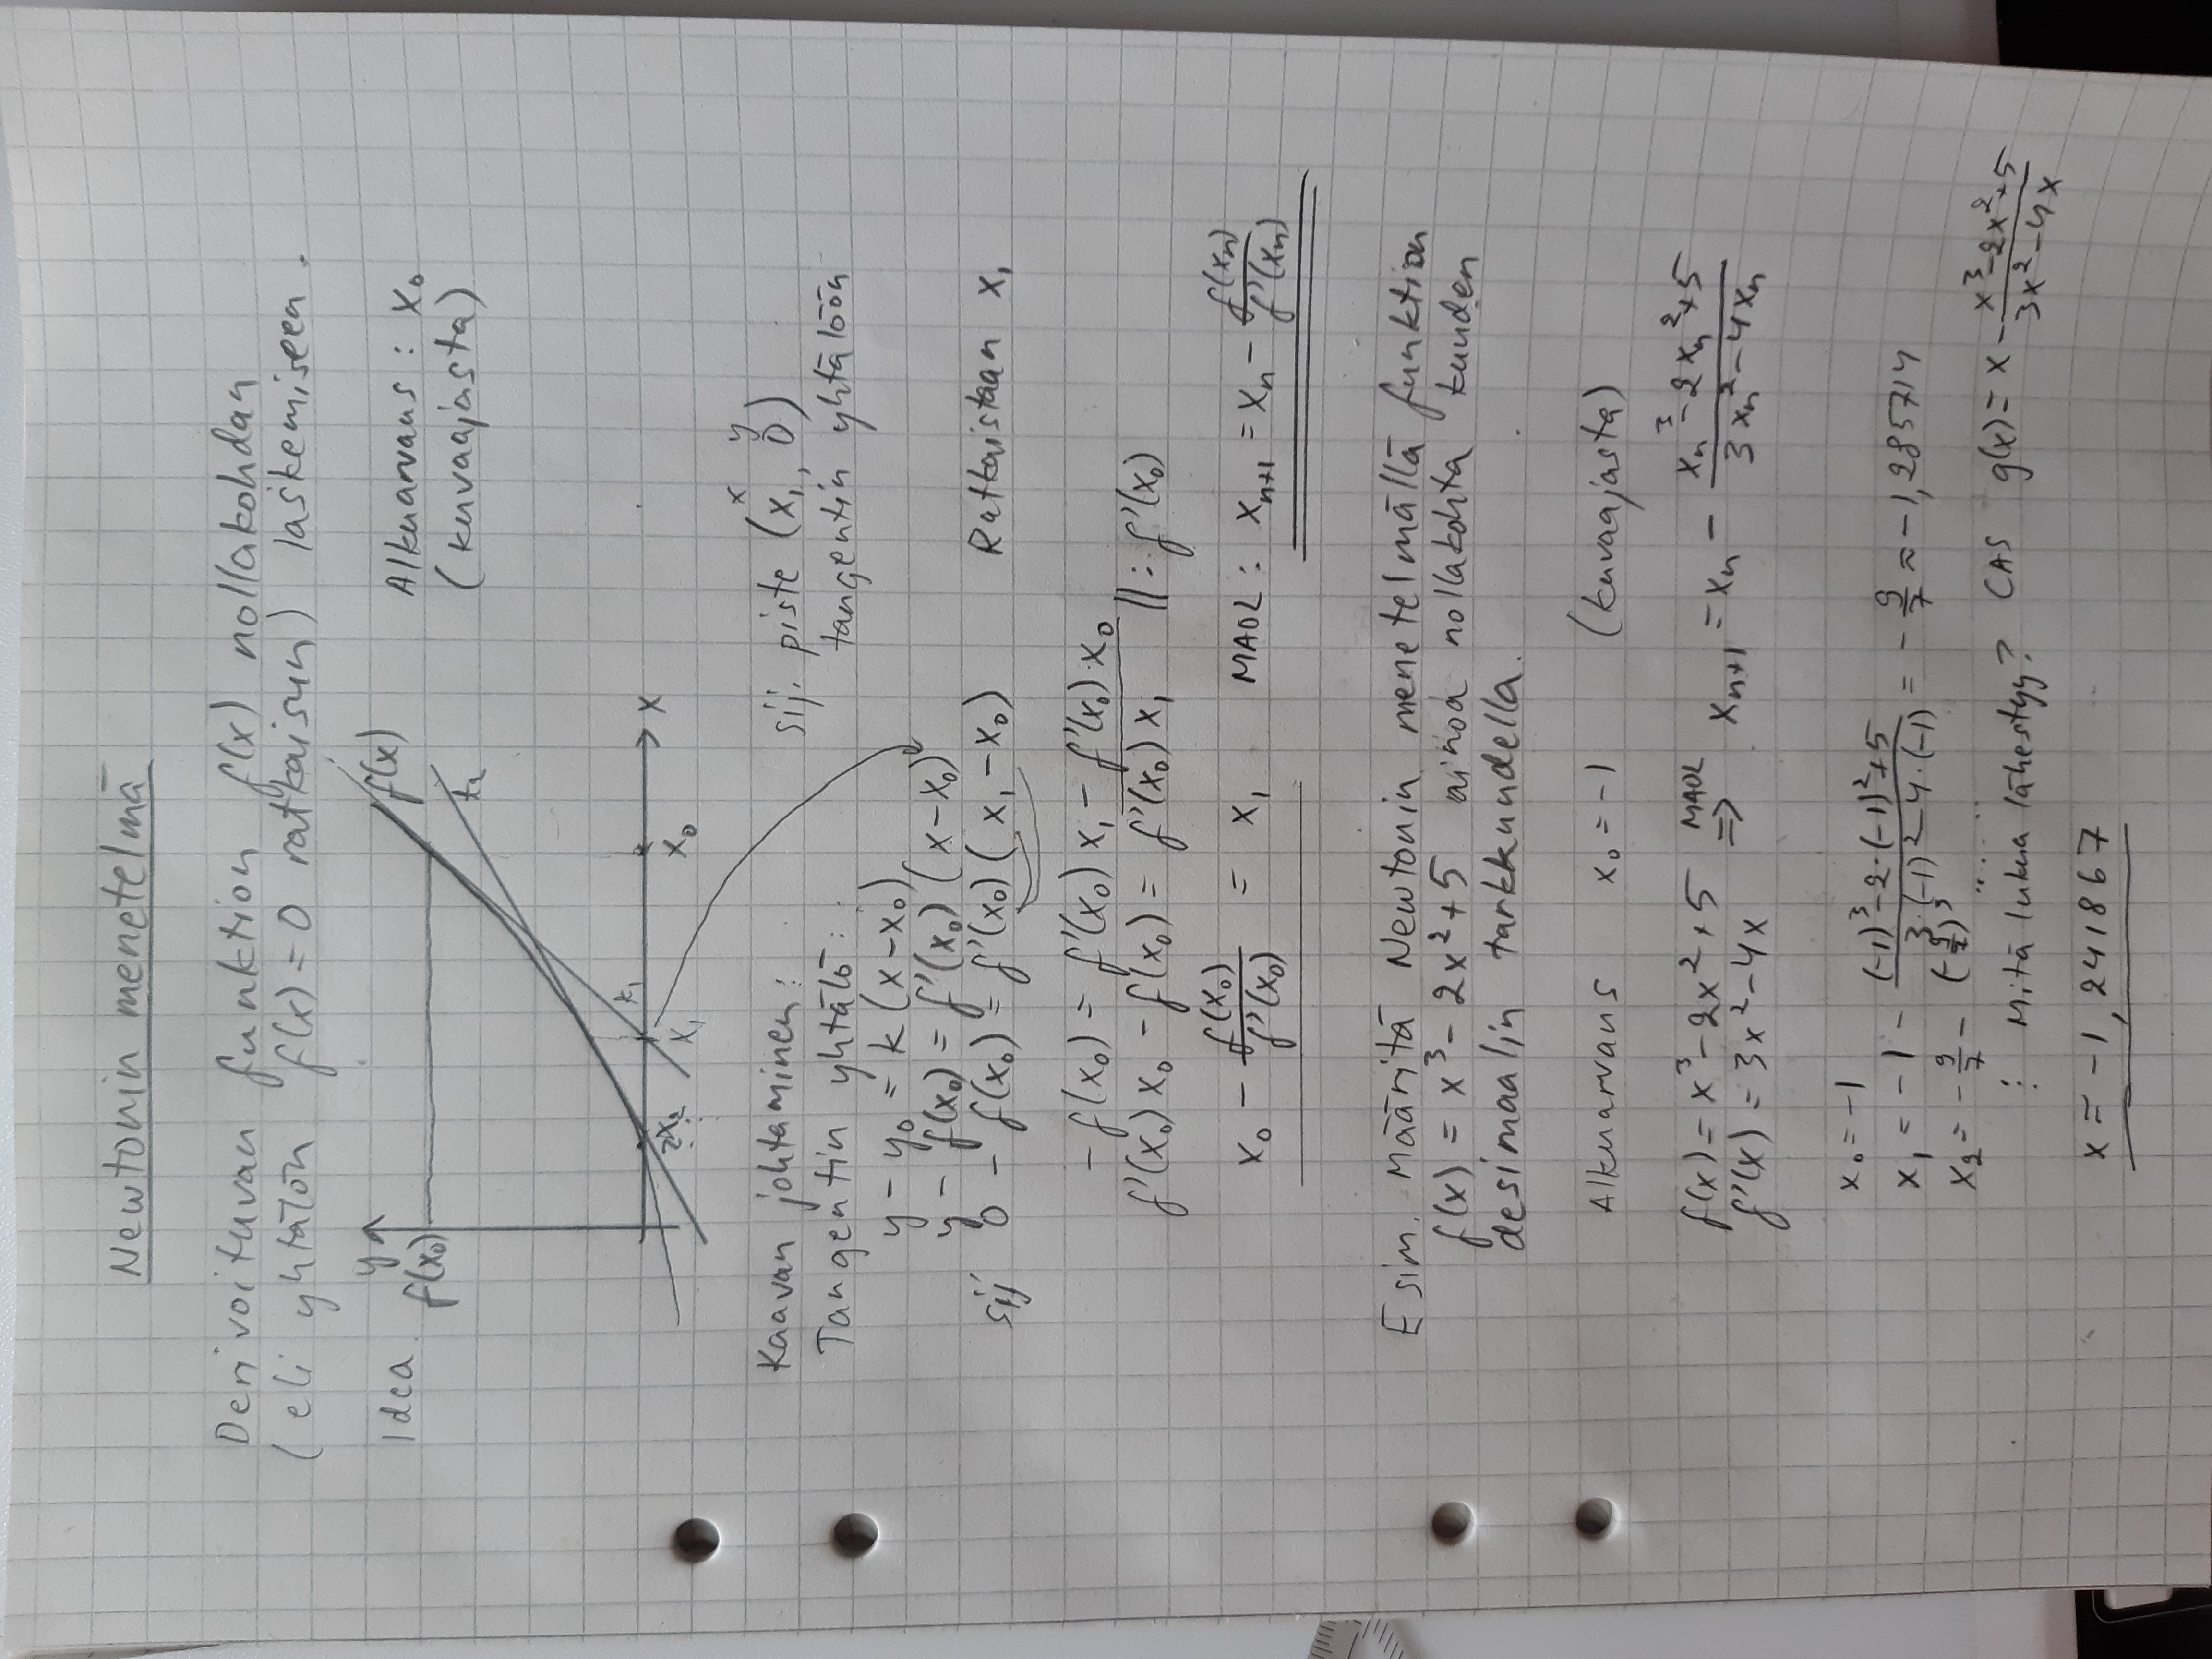 Newtonin menetelmä
Derivoituvan funktion f(x) nollakohdan
(eli yhtälön f(x) = 0 ratkaisun) laskemiseen.
Idea
y
f(x)
Alkuarvaus: x₀
(kuvaajasta)
f(x₀)
t₂
t₁
x₂
x₁
x₀
x
Kaavan johtaminen:
Tangentin yhtälö:
sij. piste (x₁, 0)
x y
tangentin yhtälöön
y - y₀ = k(x - x₀)
y - f(x₀) = f'(x₀)(x - x₀)
sij 0 - f(x₀) = f'(x₀)(x₁ - x₀) Ratkaistaan x₁
- f(x₀) = f'(x₀)x₁ - f'(x₀)·x₀
f'(x₀)x₀ - f(x₀) = f'(x₀)x₁ ||: f'(x₀)
x₀ - f(x₀)/f'(x₀) = x₁ MAOL: xₙ₊₁ = xₙ - f(xₙ)/f'(xₙ)
Esim. Määritä Newtonin menetelmällä funktion
f(x) = x³ - 2x² + 5 ainoa nollakohta kuuden
desimaalin tarkkuudella.
Alkuarvaus x₀ = -1 (kuvaajasta)
f(x) = x³ - 2x² + 5 MAOL
f'(x) = 3x² - 4x => xₙ₊₁ = xₙ - (xₙ³ - 2xₙ² + 5)/(3xₙ² - 4xₙ)
x₀ = -1
x₁ = -1 - ((-1)³ - 2·(-1)² + 5)/(3·(-1)² - 4·(-1)) = -9/7 ≈ -1,285714
x₂ = -9/7 - (-9/7)³ ....
⋮ Mitä lukua lähestyy? CAS g(x) = x - (x³ - 2x² + 5)/(3x² - 4x)
x = -1,241867